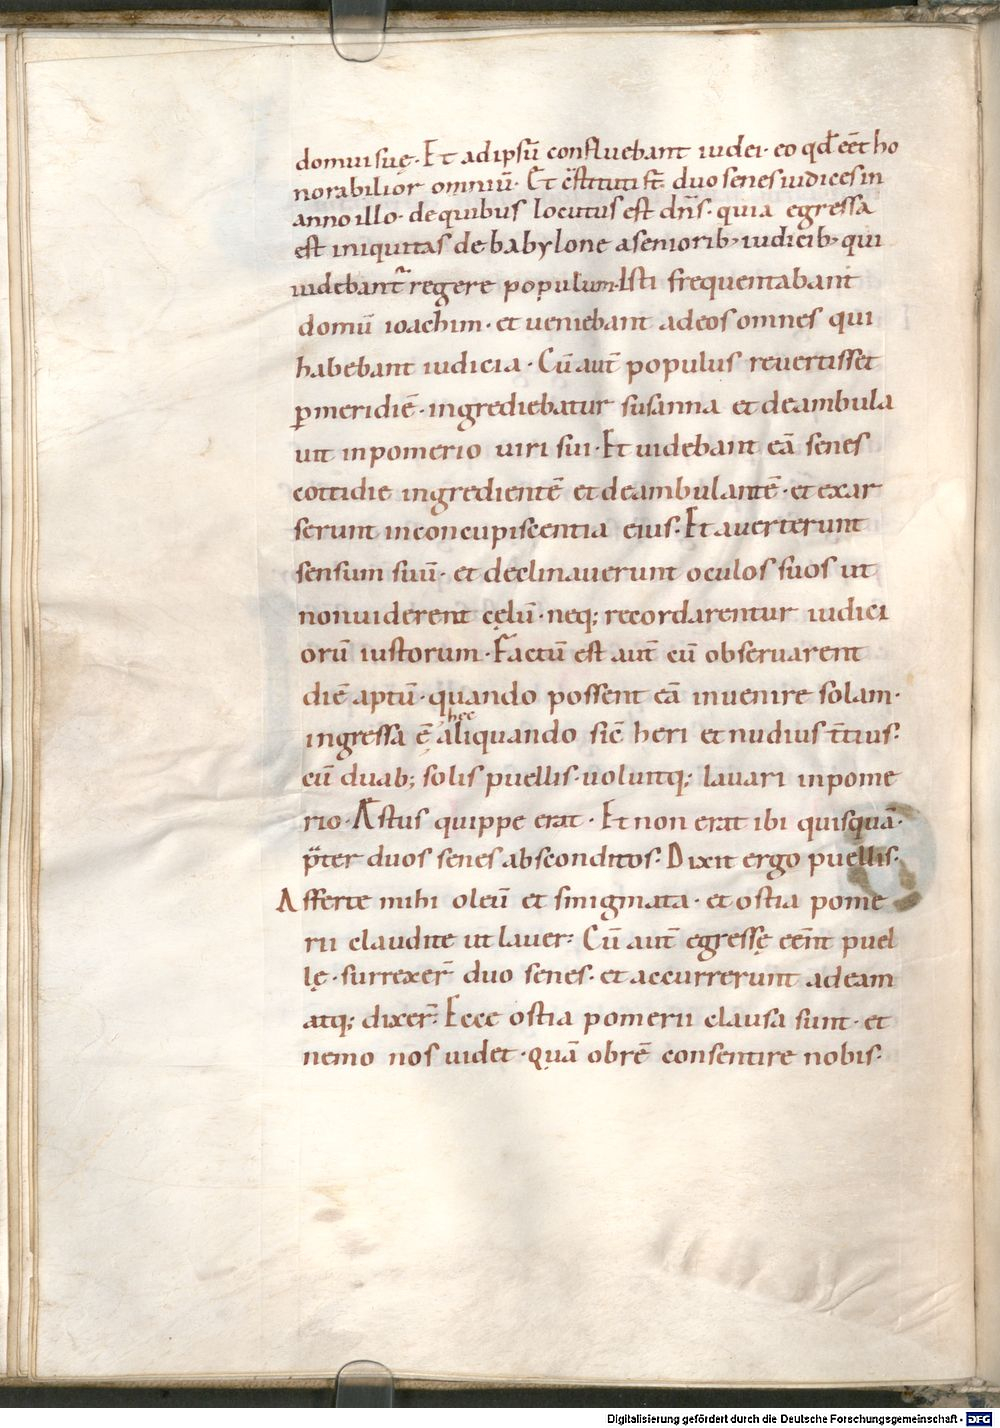 domui suę · Et ad ipsū confluebant iudei · eo qđ eēt ho
norabilior omniū · Et c̄stituti st̄ duo senes iudices in
anno illo · de quibus locutus est dn̄s · quia egressa
est iniquitas de babylone a seniorib; iudicib; qui
uidebant̃ regere populum · Isti frequentabant
domū ioachim · et ueniebant ad eos omnes qui
habebant iudicia · Cū aut̄ populus reuertisset
ꝑ meridiē · ingrediebatur susanna et deambula
uit in pomerio uiri sui · Et uidebant eā senes
cottidie ingredientē et deambulantē · et exar
serunt in concupiscentia eius · Et auerterunt
sensum suū · et declinauerunt oculos suos ut
non uiderent cęlū · neq; recordarentur iudici
orū iustorum · Factū est aut̄ cū obseruarent
diē aptū · quando possent eā inuenire solam ·
ingressa ē hec aliquando sic̄ heri et nudius t̄tius ·
cū duab; solis puellis · uoluitq; lauari in pome
rio · Aestus quippe erat · Et non erat ibi quisquā ·
p̄ter duos senes absconditos · Dixit ergo puellis ·
Afferte mihi oleū et smigmata · et ostia pome
rii claudite ut lauer · Cū aut̄ egressę eēnt puel
lę · surrexer̄ duo senes · et accurrerunt ad eam
atq; dixer̄ · Ecce ostia pomerii clausa sunt · et
nemo nos uidet · quā obrē consentire nobis ·
Digitalisierung gefördert durch die Deutsche Forschungsgemeinschaft - DFG